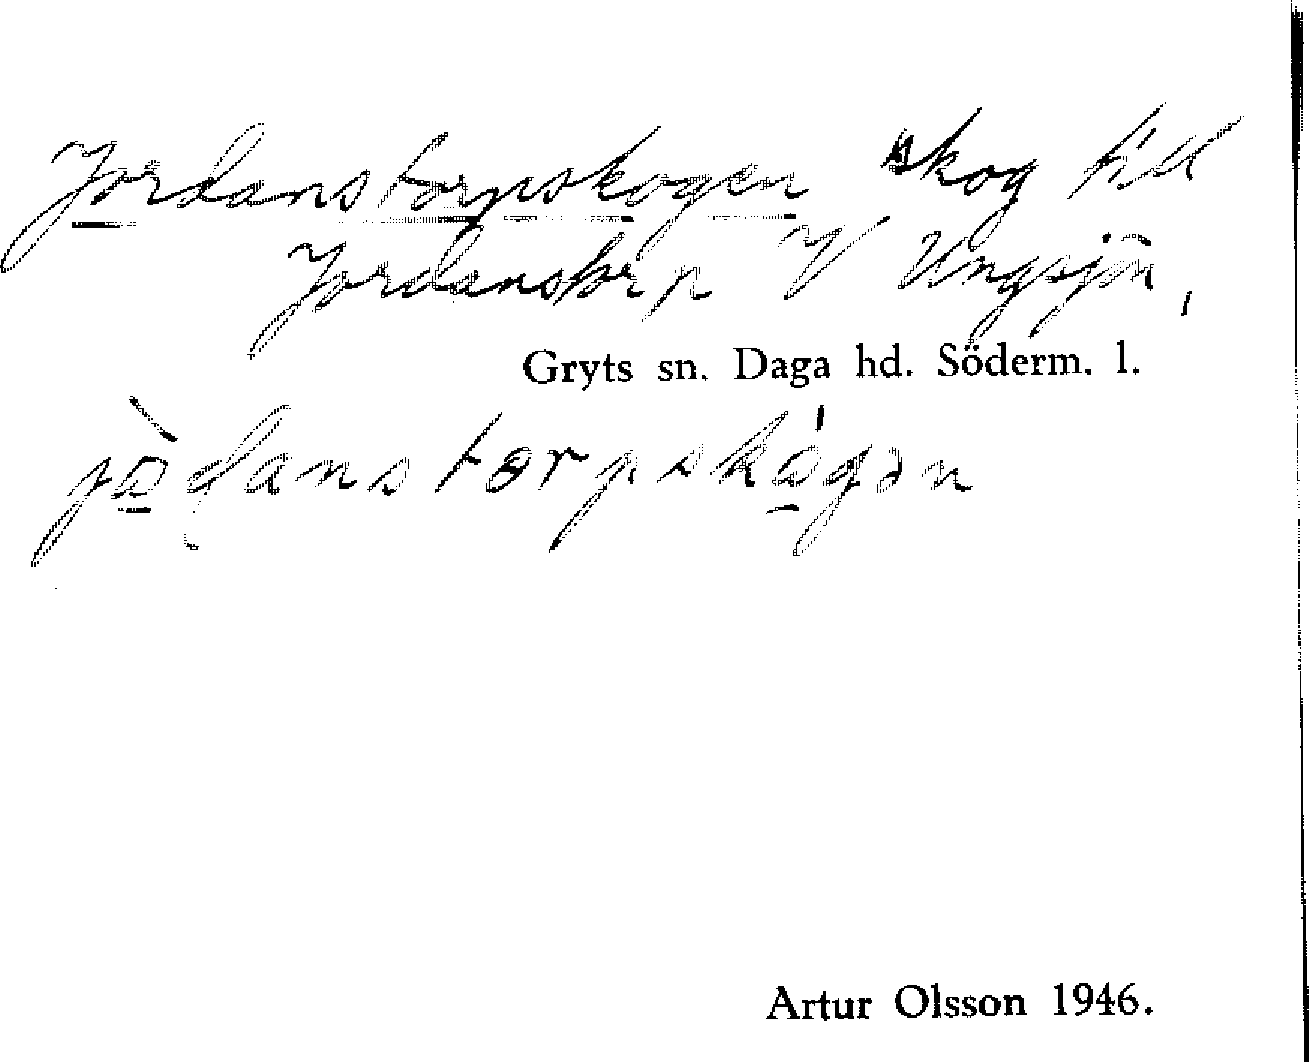 Jordanstorpskogen skog till
Jordanstorp V Ungsjön,
Gryts sn. Daga hd. Söderm. l.
Artur Olsson 1946.